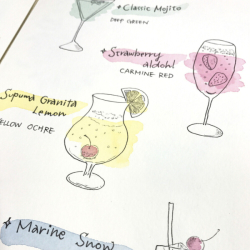 Classic Mojito
DEEP GREEN
Strawberry
alcohol
CARMINE RED
Spuma Granita
Lemon
YELLOW OCHRE
Marine Snow